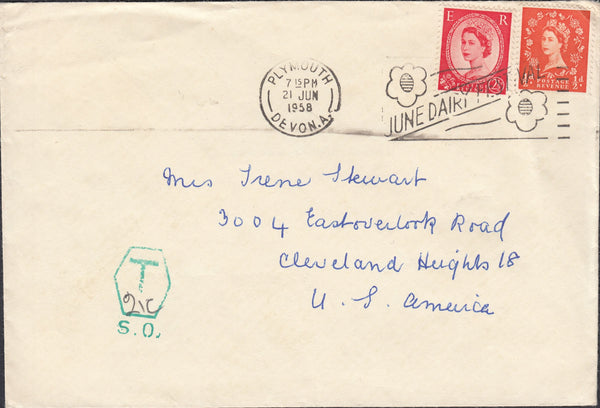 E R
2½D
POSTAGE
REVENUE
½d
PLYMOUTH
7 15PM
21 JUN
1958
DEVON.A.
JUNE DAIRY FESTIVAL
Mrs Irene Stewart
3004 Eastoverlook Road
Cleveland Heights 18
U. S. America
T
S.O.